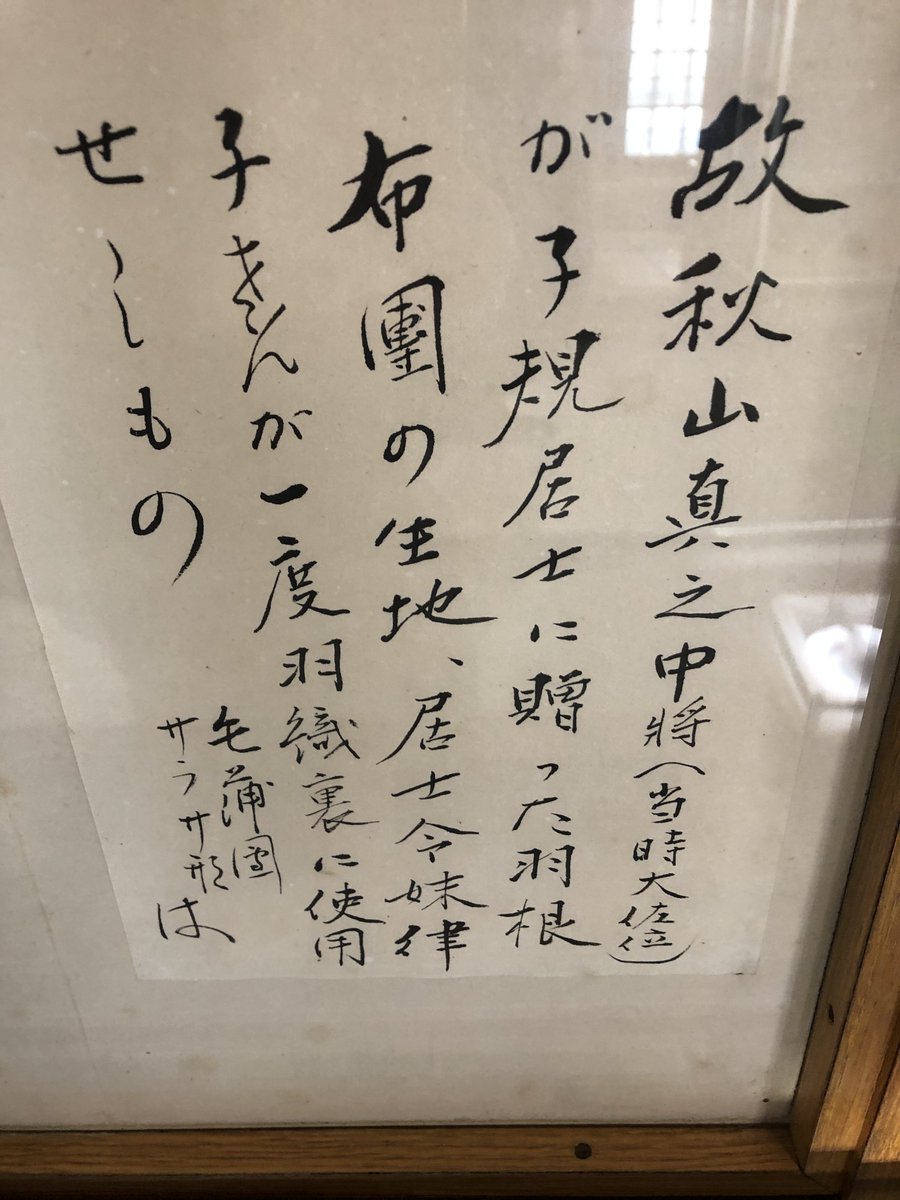 故秋山真之中將(当時大佐位)
が子規居士に贈った羽根
布團の生地、居士令妹律
子さんが一度羽織裏に使用
せしもの
毛蒲團
サラサ形は